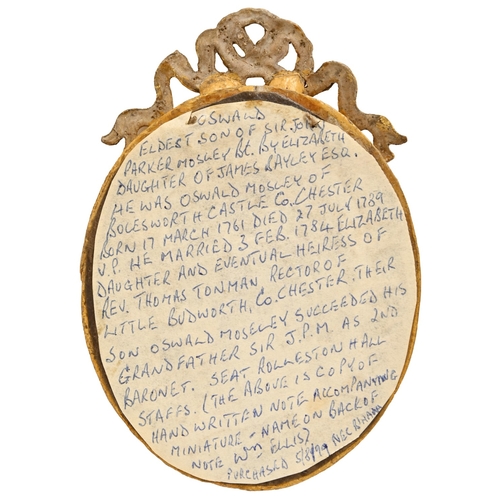 OSWALD
ELDEST SON OF SIR JOHN
PARKER MOSLEY BT. BY ELIZABETH
DAUGHTER OF JAMES BAYLEY ESQ.
HE WAS OSWALD MOSLEY OF
BOLESWORTH CASTLE CO. CHESTER
BORN 17 MARCH 1761 DIED 27 JULY 1789
V.P. HE MARRIED 3 FEB. 1784 ELIZABETH
DAUGHTER AND EVENTUAL HEIRESS OF
REV. THOMAS TONMAN, RECTOR OF
LITTLE BUDWORTH, CO. CHESTER. THEIR
SON OSWALD MOSELEY SUCCEEDED HIS
GRANDFATHER SIR J.P.M. AS 2ND
BARONET. SEAT ROLLESTON HALL
STAFFS. (THE ABOVE IS COPY OF
HAND WRITTEN NOTE ACCOMPANYING
MINIATURE - NAME ON BACK OF
NOTE WM ELLIS)
PURCHASED 5/8/99 NEC